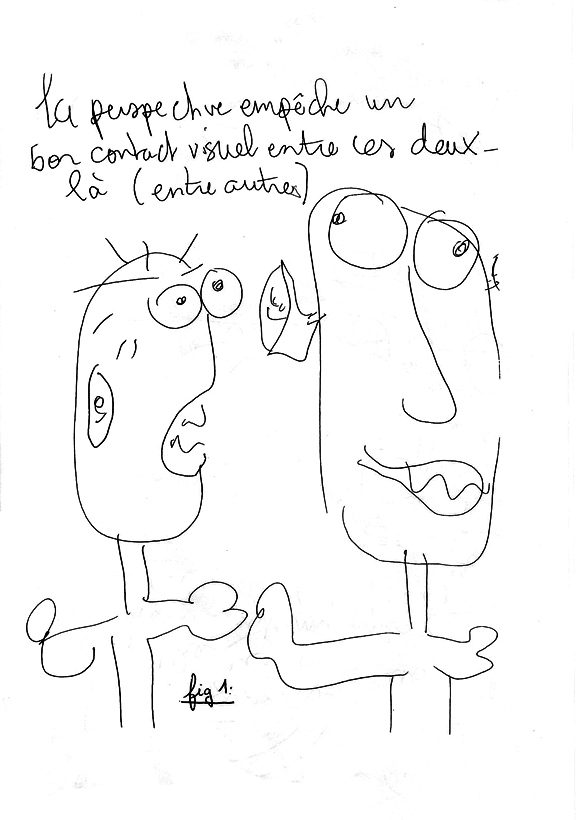 la perspective empêche un
bon contact visuel entre ces deux-
là (entre autres)
fig 1: